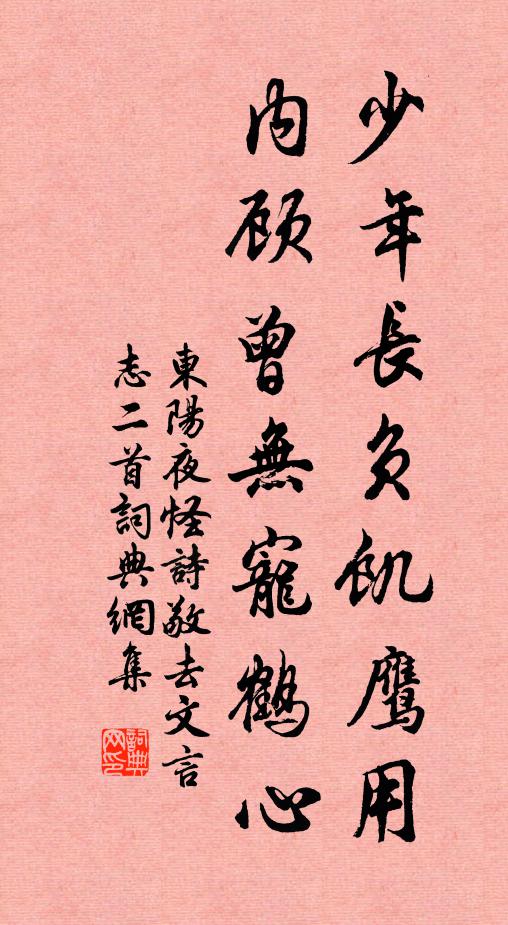 少年長負飢鹰用
内顾曾無寵鶴心
東陽夜怪詩敬去文言
志二首詞典網集
詞典網印